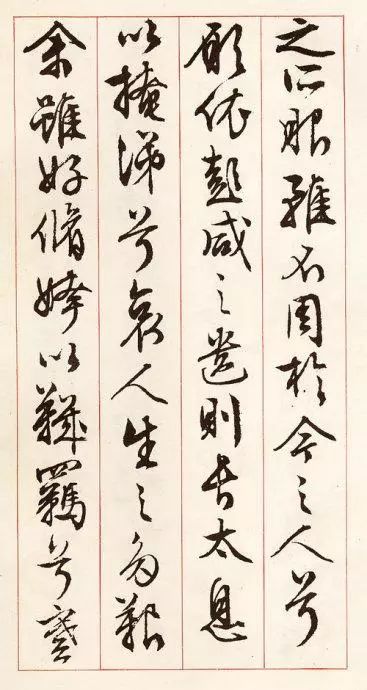 之所服雖不周於今之人兮
願依彭咸之遺則長太息
以掩涕兮哀人生之多艱
余雖好脩姱以鞿羈兮謇